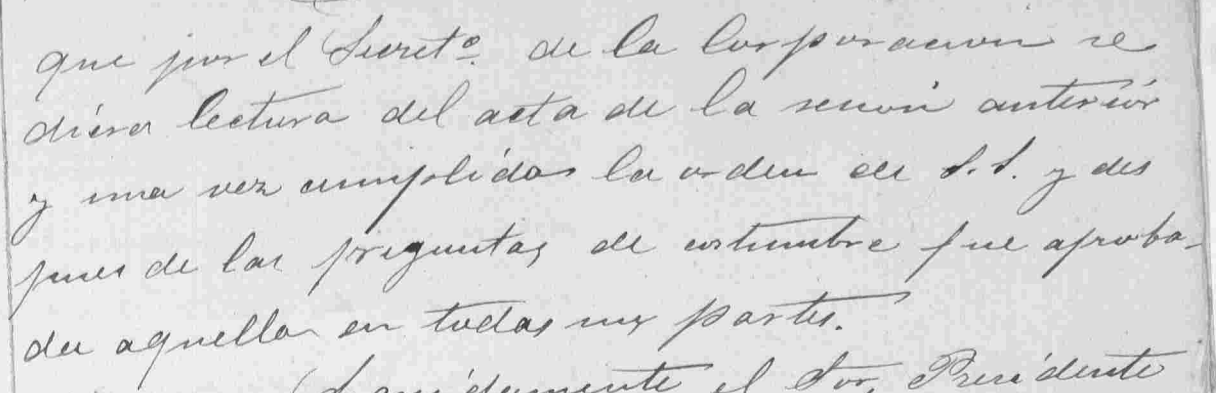 que por el Secretº. de la Corporacion se
diera lectura del acta de la sesión anterior
y una vez cumplida la orden de S.S. y des
pues de las preguntas de costumbre fue aproba-
da aquella en todas sus partes.
Seguidamente el Sor. Presidente